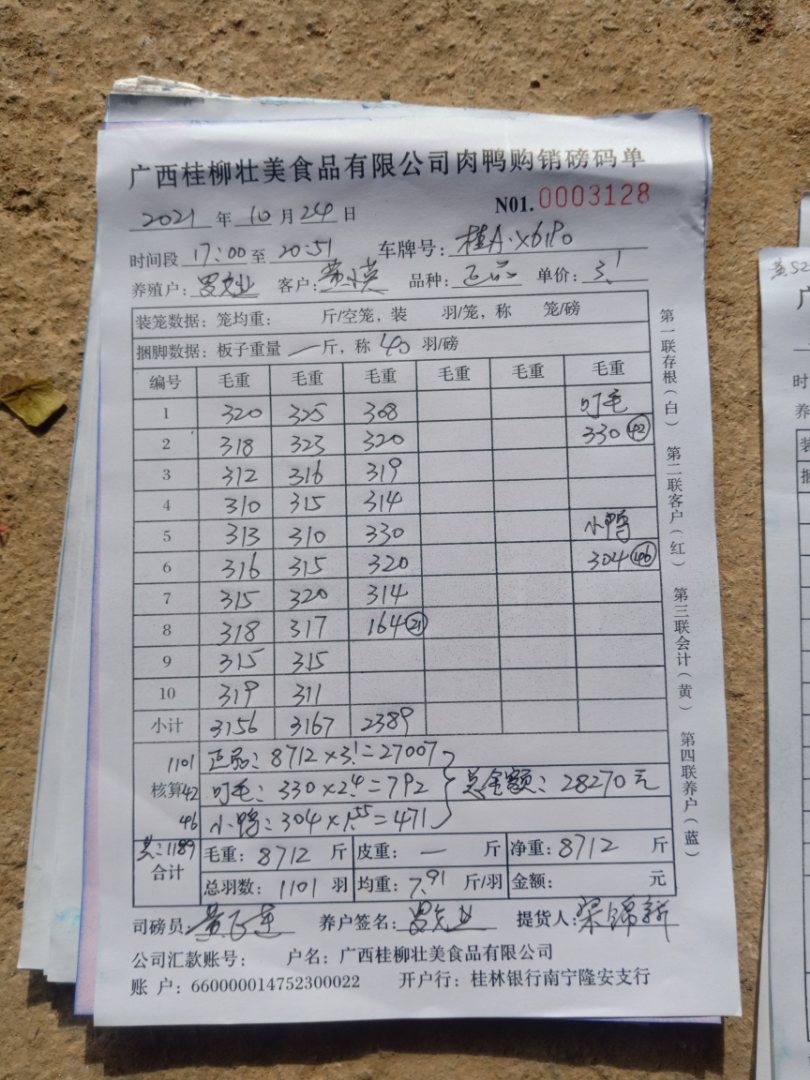 广西桂柳壮美食品有限公司肉鸭购销磅码单
2021 年 10 月 24 日 N01.0003128
时间段 17:00 至 20:51 车牌号: 桂A·X61P0
养殖户: 客户: 品种: 正品 单价: 3.1
装笼数据: 笼均重: 斤/空笼, 装 羽/笼, 称 笼/磅
捆脚数据: 板子重量 — 斤, 称 40 羽/磅
编号 毛重 毛重 毛重 毛重 毛重 毛重
1 320 325 308 叮毛
2 318 323 320 330 42
3 312 316 319
4 310 315 314
5 313 310 330 小鸭
6 316 315 320 304 46
7 315 320 314
8 318 317 164 21
9 315 315
10 319 311
小计 3156 3167 2389
1101 正品: 8712×3.1=27007
核算 42 叮毛: 330×2.4=792 总金额: 28270元
46 小鸭: 304×1.55=471
共: 1189
合计 毛重: 8712 斤 皮重: — 斤 净重: 8712 斤
总羽数: 1101 羽 均重: 7.91 斤/羽 金额: 元
司磅员 养户签名: 提货人:
公司汇款账号: 户名: 广西桂柳壮美食品有限公司
账 户: 660000014752300022 开户行: 桂林银行南宁隆安支行
第一联存根(白) 第二联客户(红) 第三联会计(黄) 第四联养户(蓝)